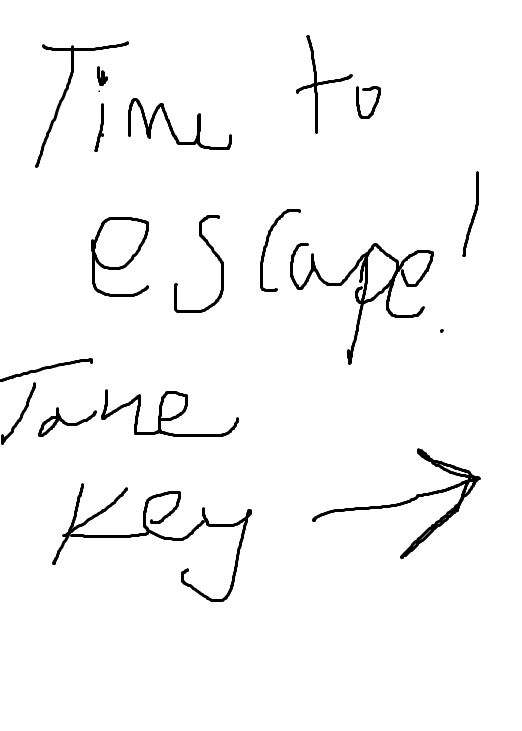 Time to
escape!
Take
Key →